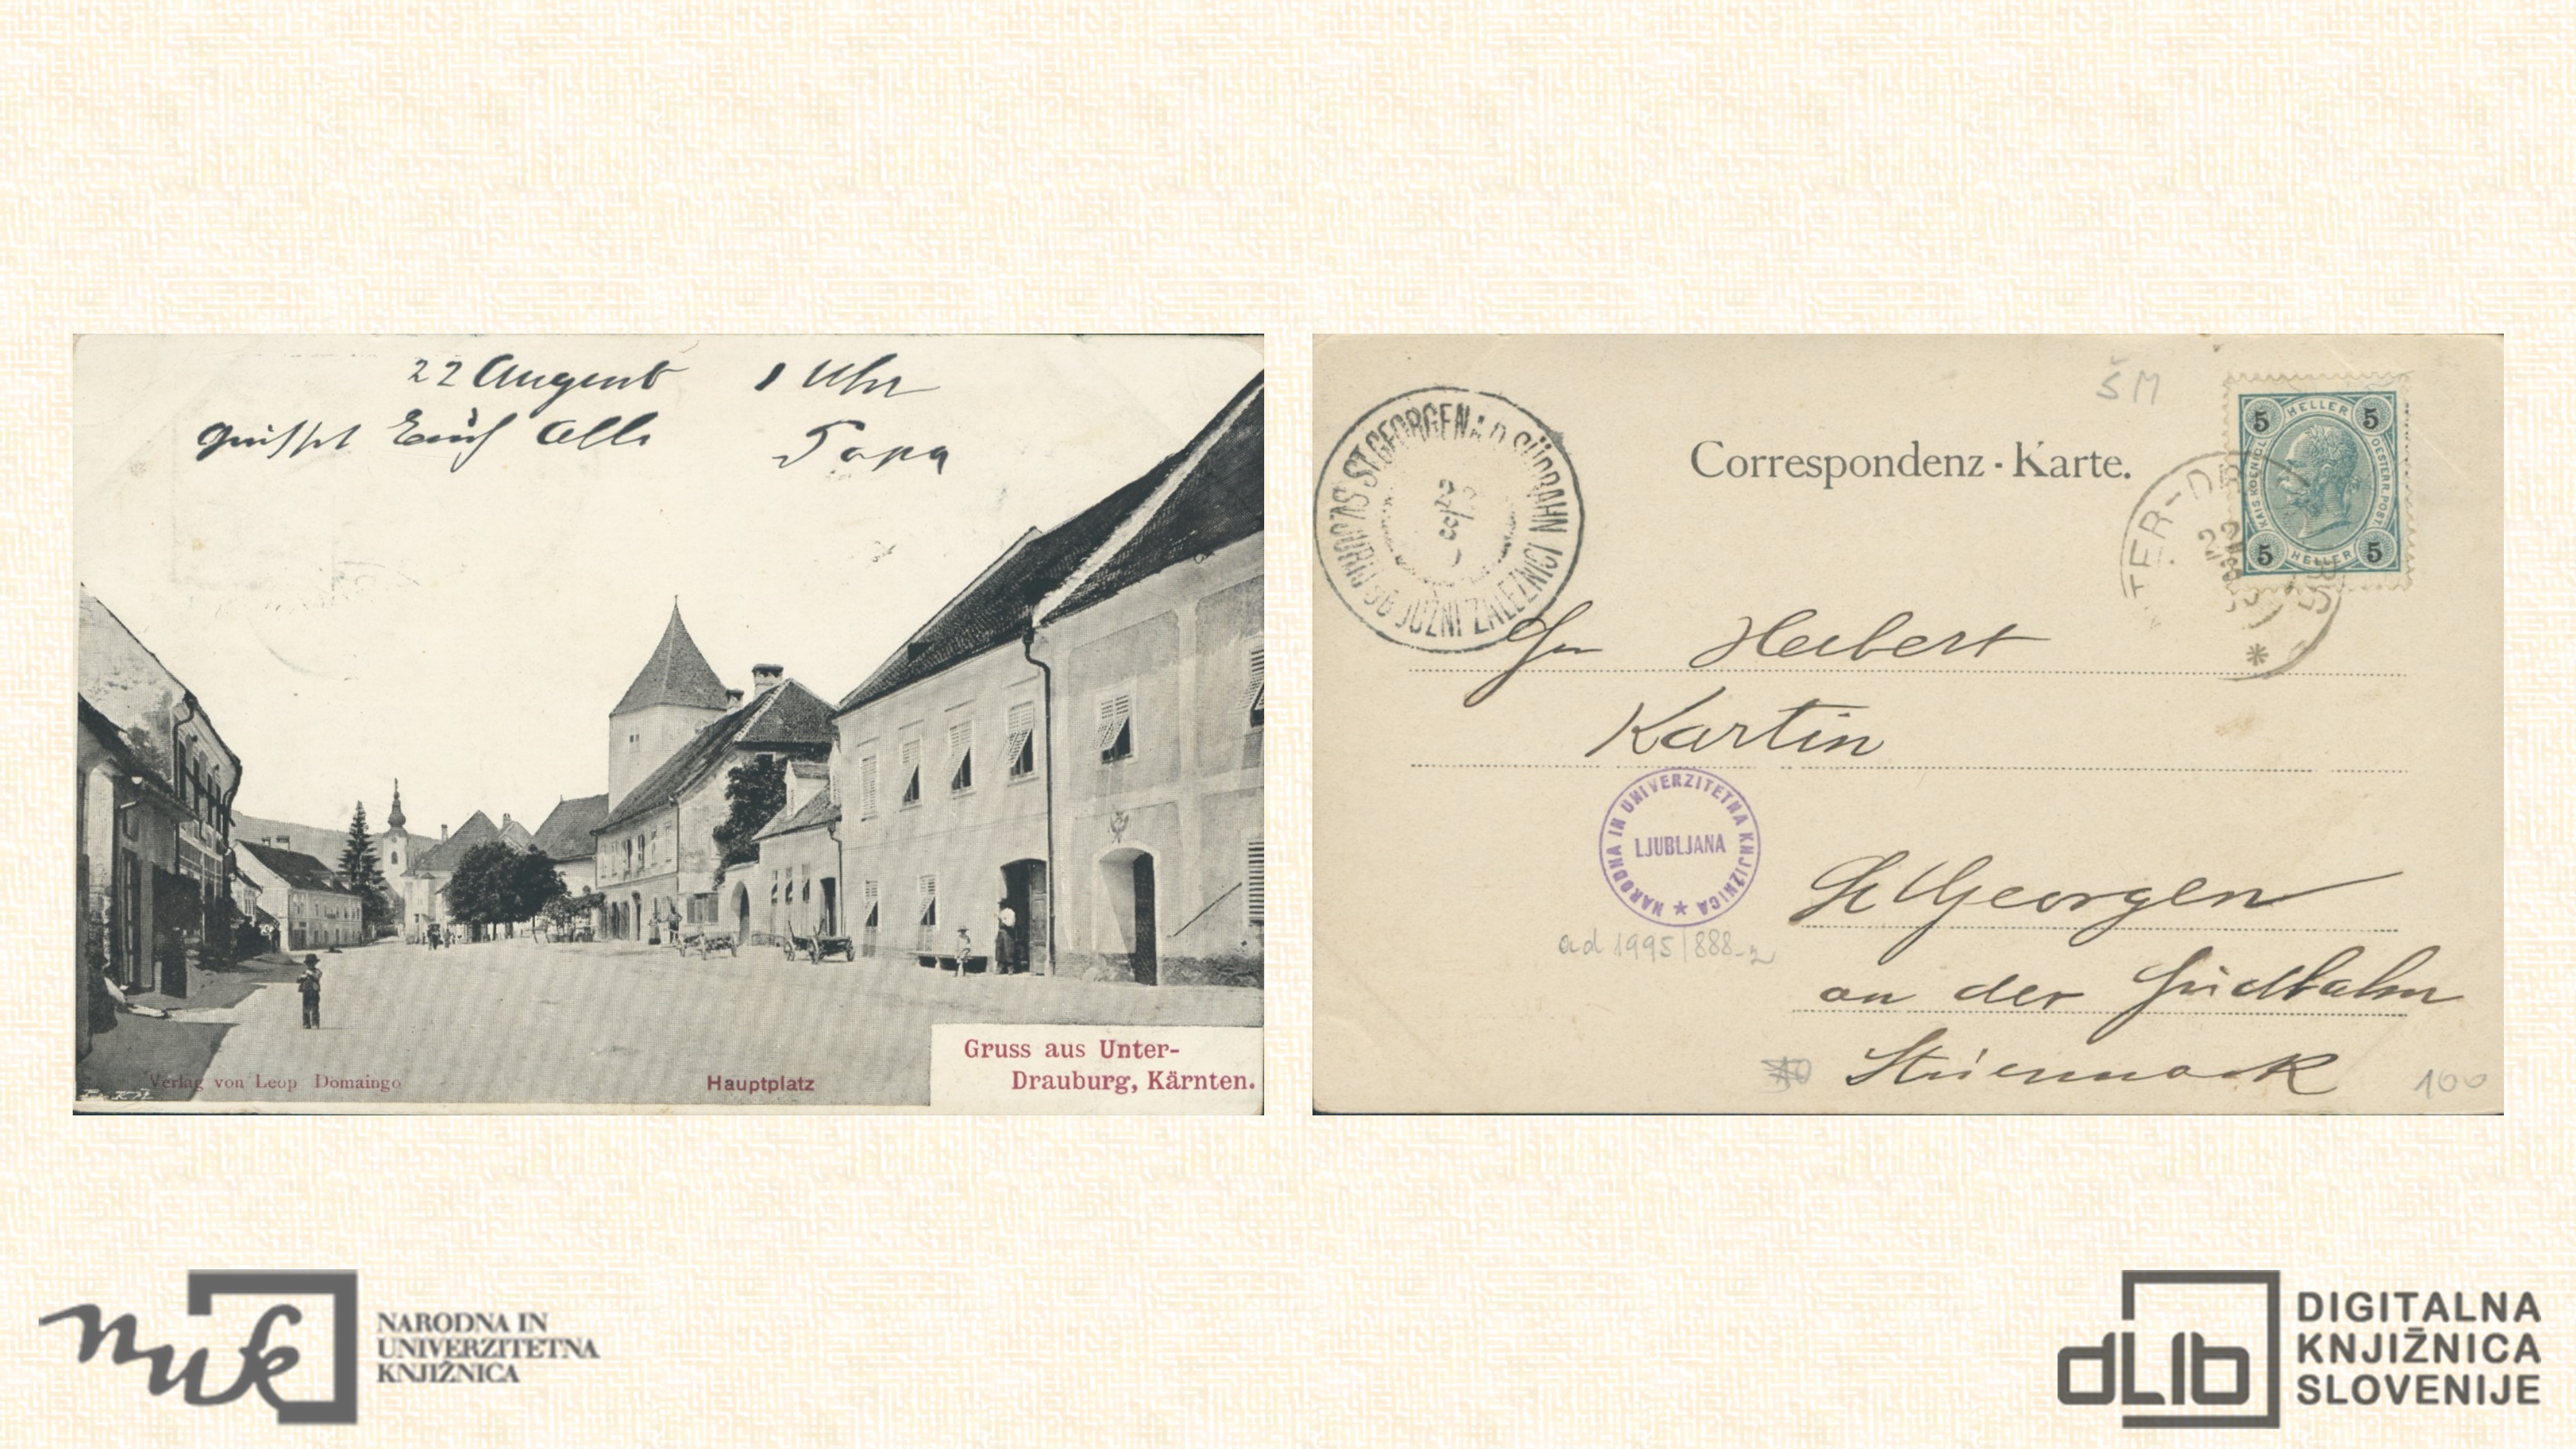 22 August 1 Uhr
grüsst Euch Alle Papa
Gruss aus Unter-
Drauburg, Kärnten.
Verlag von Leop Domaingo
Hauptplatz
ŠM
ST. GEORGEN A. D. SÜDBAHN
JUŽNI ŽALEZNICI
Correspondenz-Karte.
5 HELLER 5
KAIS. KÖNIGL. OESTERR. POST.
5 HELLER 5
TER-D
22
Herbert
Kartin
NARODNA IN UNIVERZITETNA KNJIŽNICA
LJUBLJANA
ad 1995/888-2
St Georgen
an der Südbahn
Steiermark
100
nuk
NARODNA IN
UNIVERZITETNA
KNJIŽNICA
dLib
DIGITALNA
KNJIŽNICA
SLOVENIJE